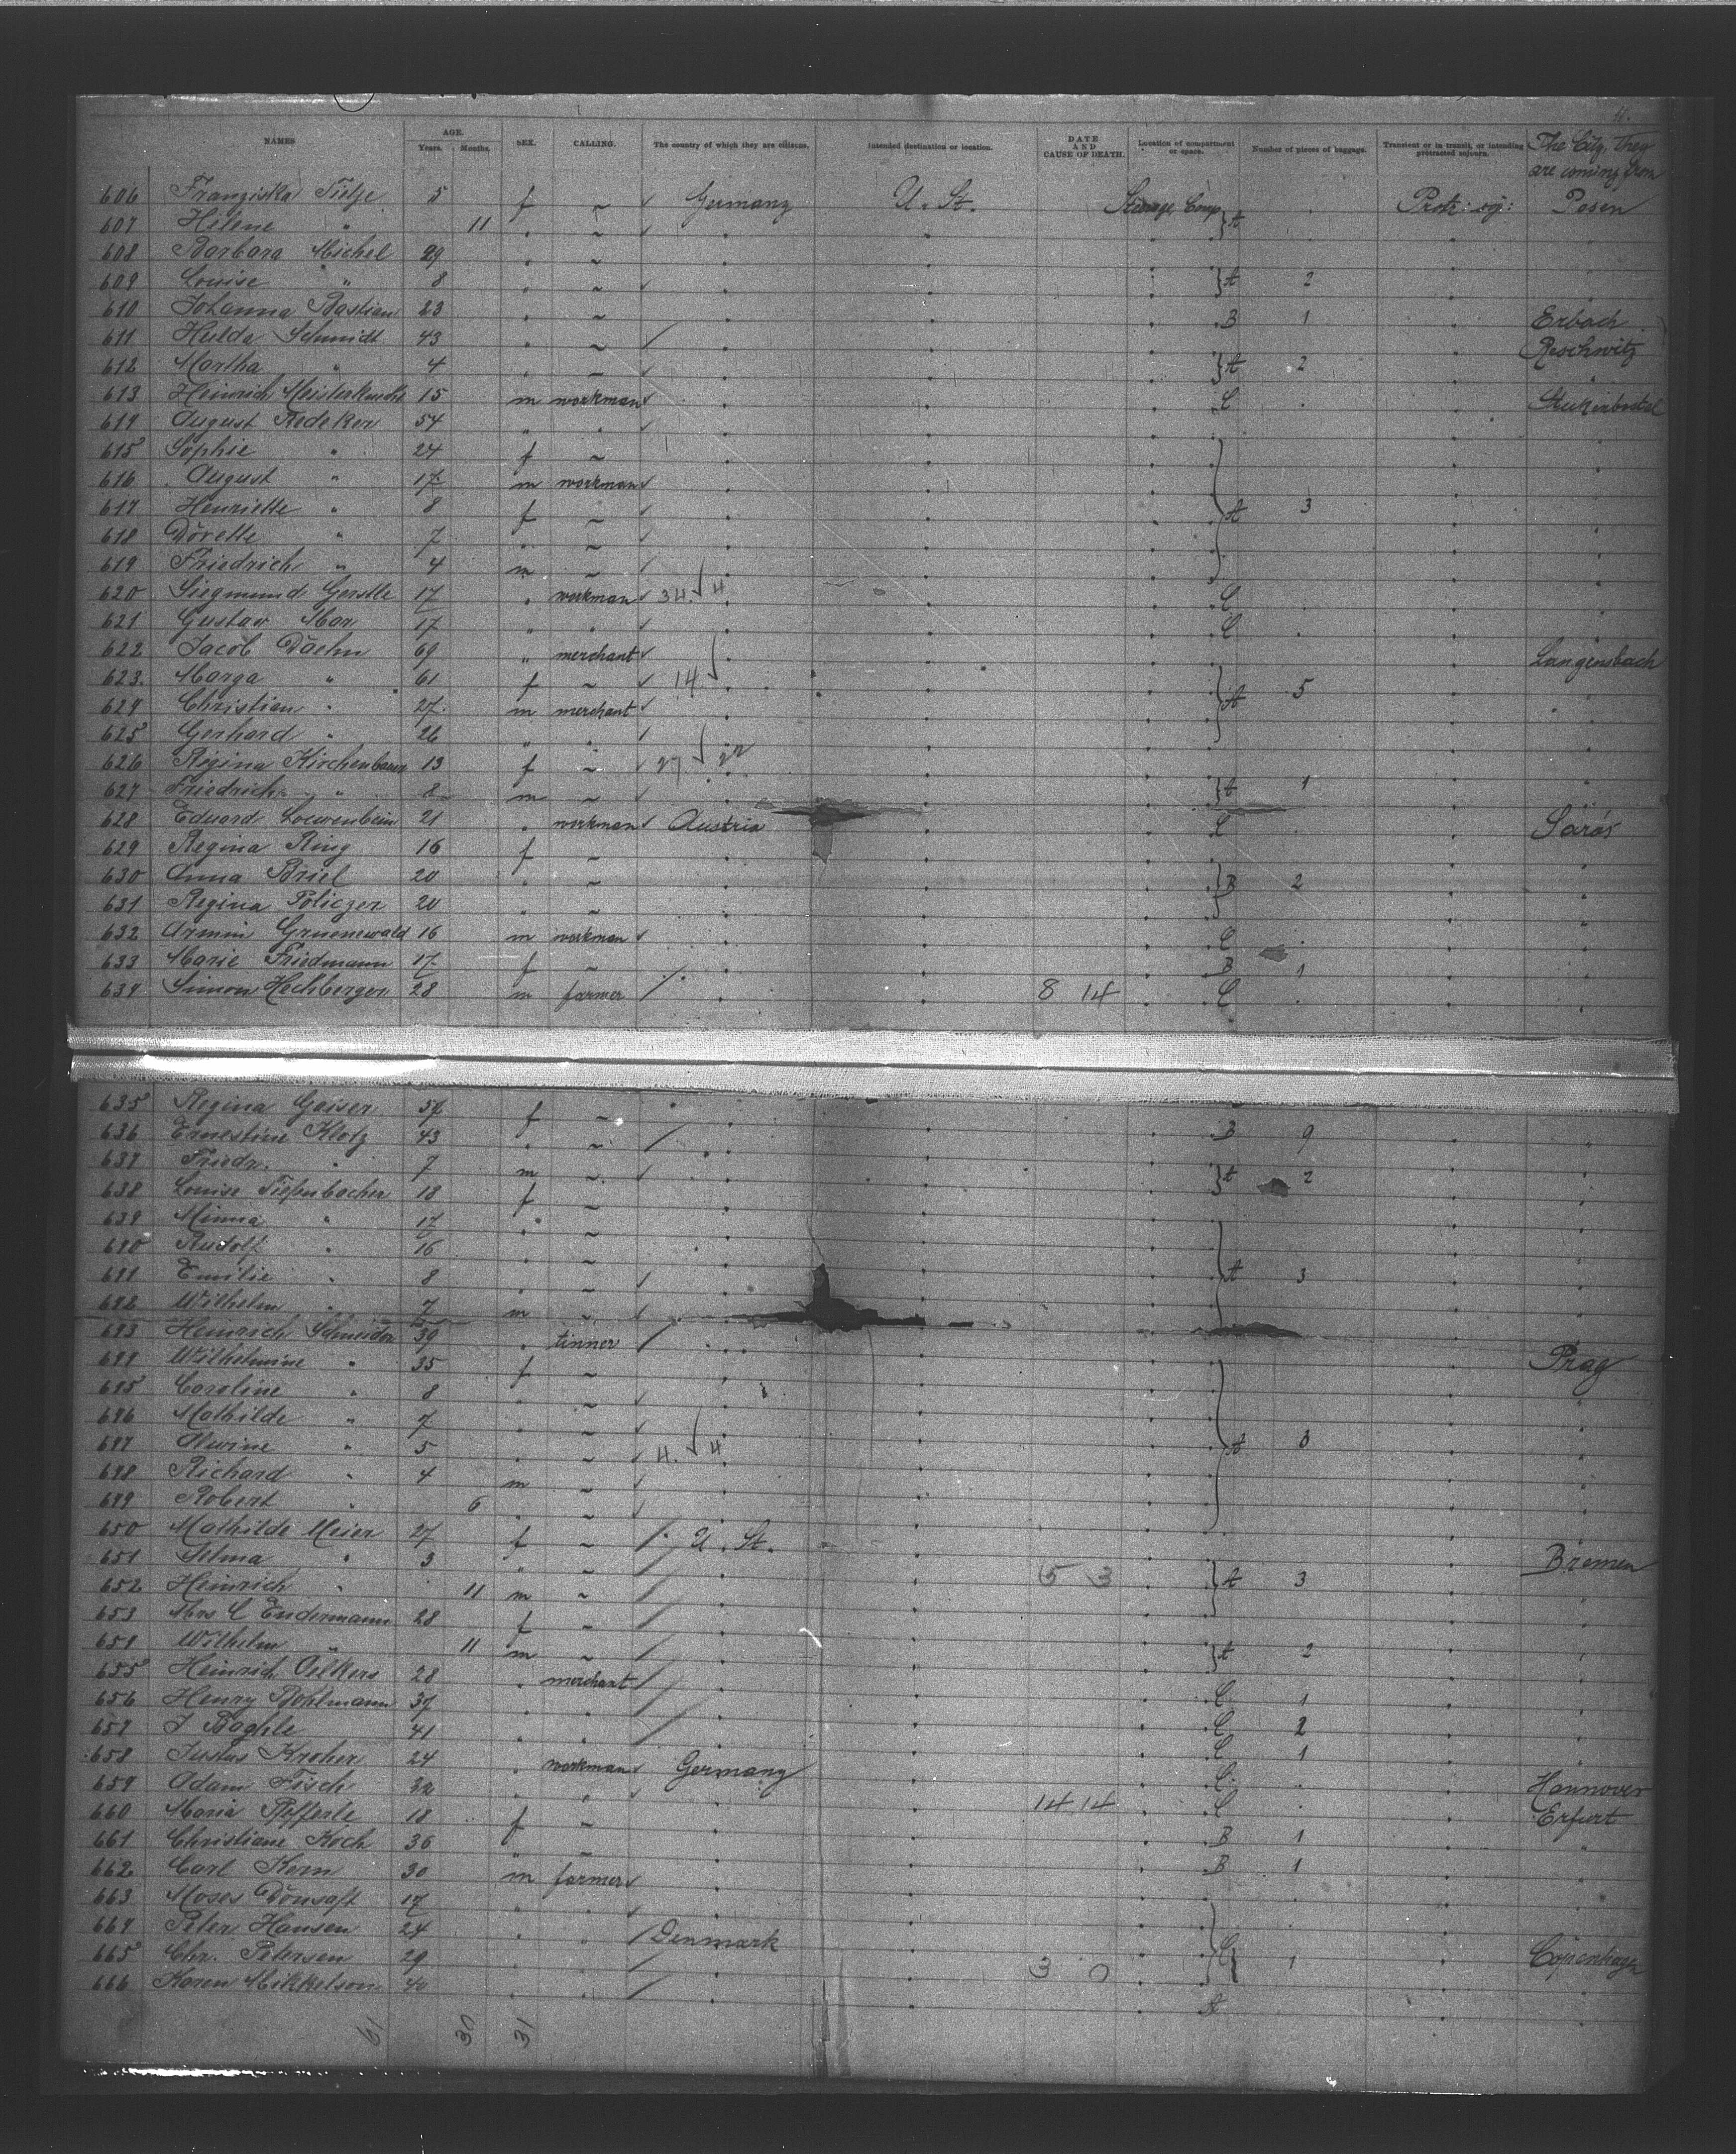 11.
NAMES AGE. Years. Months. SEX. CALLING. The country of which they are citizens. Intended destination or location. DATE AND CAUSE OF DEATH. Location of compartment or space. Number of pieces of baggage. Transient or in transit, or intending protracted sojourn. The City they are coming from
606 Franziska Tietje 5 f ~ ✓ Germany U. St. Steerage Comp Protr: soj: Posen
607 Helene " 11 " ~ ✓ } A
608 Barbara Michel 29 " ~
609 Louise " 8 " ~ ✓ } A 2
610 Johanna Bastian 23 " ~ B 1 Erbach
611 Hulda Schmidt 43 " ~ / Reschwitz
612 Martha " 4 " ~ ✓ } A 2
613 Heinrich Meisterknecht 15 m workman ✓ C
614 August Redeker 54 " " ✓
615 Sophie " 24 f ~
616 August " 17 m workman ✓
617 Henriette " 8 f ~ ✓ } A 3
618 Dorette " 7 " ~ ✓
619 Friedrich " 4 m ~ ✓
620 Siegmund Gerstle 17 " workman ✓ 34 4 C
621 Gustav Mar 17 " " ✓ C
622 Jacob Daehn 69 " merchant ✓ Langensbach
623. Marga " 61 f ~ ✓ 14 } A 5
624 Christian " 27 m merchant ✓
625 Gerhard " 26 " " ✓
626 Regina Kirchenbauer 13 f ~ ✓ 27 22
627 Friedrich " 8 m ~ ✓ } A 1
628 Eduard Loewenbein 21 " workman ✓ Austria C Sáros
629 Regina Ring 16 f ~
630 Anna Briel 20 " ~ } B 2
631 Regina Policzer 20 " ~
632 Armin Gruenewald 16 m workman ✓ C
633 Marie Friedmann 17 f ~ B 1
634 Simon Hechberger 28 m farmer / 8 14 C
635 Regina Gaiser 57 f ~
636 Ernestine Klotz 43 " ~ / B 9
637 Friedr. " 7 m ~ ✓ } A 2
638 Louise Tiefenbacher 18 f ~
639 Minna " 17 " ~
640 Rudolf " 16 " ~
641 Emilie " 8 " ~ ✓ } A 3
642 Wilhelm " 7 m ~ ✓
643 Heinrich Schneider 39 " tinner / Prag
644 Wilhelmine " 35 f ~
645 Caroline " 8 " ~ ✓
646 Mathilde " 7 " ~ ✓
647 Alwine " 5 " ~ ✓ 4. 4 } A 3
648 Richard " 4 m ~ ✓
649 Robert " 6 " ~ ✓
650 Mathilde Meier 27 f ~ / U. St. Bremen
651 Selma " 3 " ~ / 5 3 } A 3
652 Heinrich " 11 m ~ /
653 Mrs C Endermann 28 f ~ /
654 Wilhelm " 11 m ~ / } A 2
655 Heinrich Oelkers 28 " merchant / C 1
656 Henry Bohlmann 37 " " / C 2
657 J Baghle 41 " " / C 1
658 Justus Kroher 24 " workman ✓ Germany C Hannover
659 Adam Fisch 32 " " ✓ 14 14 C Erfurt
660 Maria Pfefferle 18 f ~ B 1
661 Christiane Koch 36 " ~ B 1
662 Carl Kern 30 m farmer ✓
663 Moses Donsaft 17 " " ✓
664 Peter Hansen 24 " " / Denmark } C Copenhagen
665 Chr. Petersen 29 " " / 3 0 1
666 Karen Mikkelson 40 " " / A
61 30 31